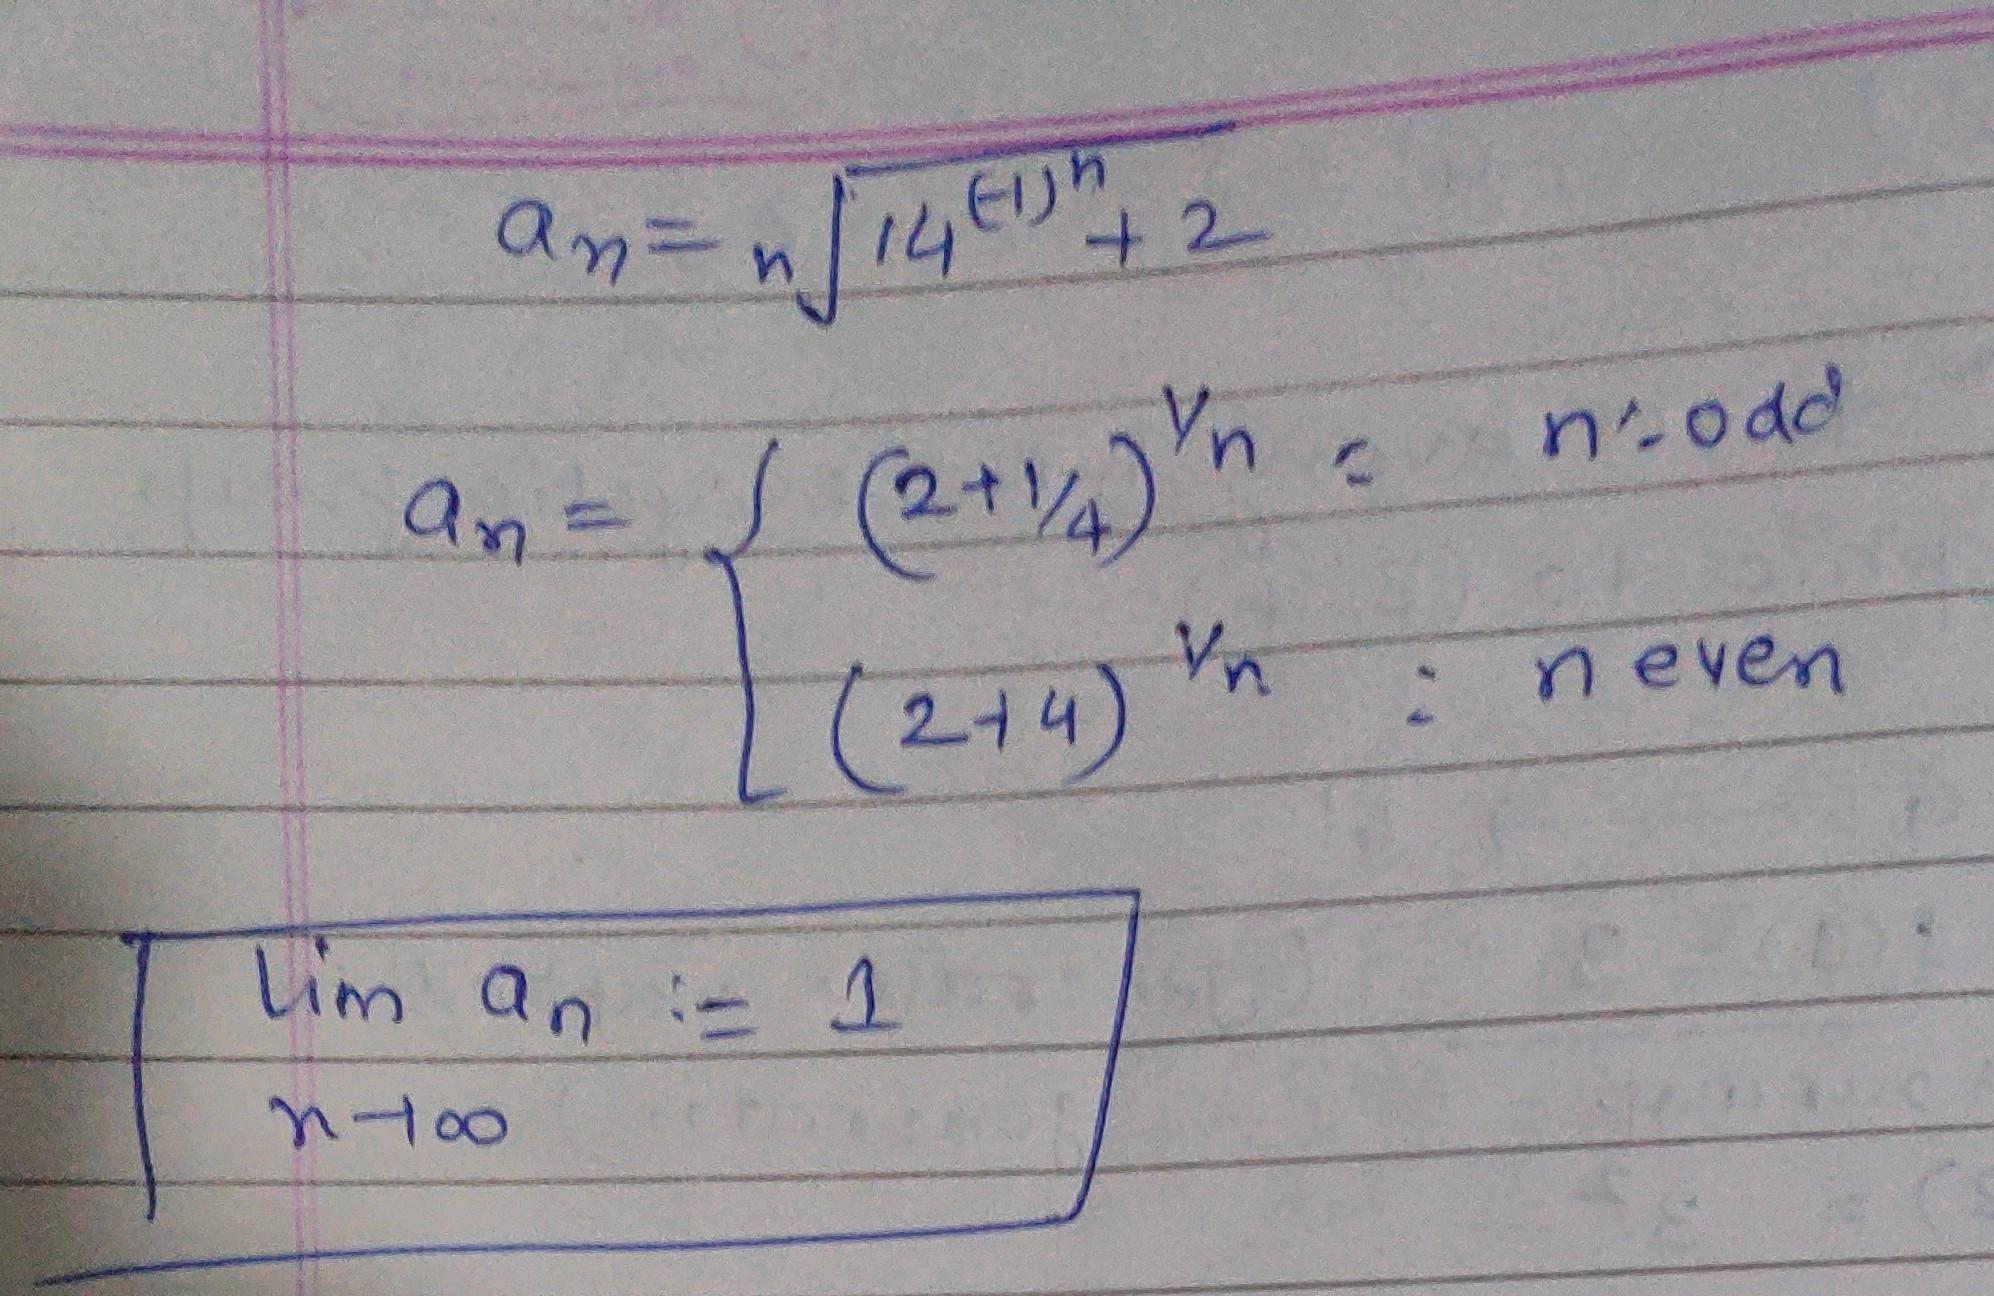 aₙ = ⁿ√(14^(-1)ⁿ + 2)
aₙ = { (2+1/4)^1/n = n:- odd
(2+4)^1/n : n even
lim aₙ := 1
n→∞